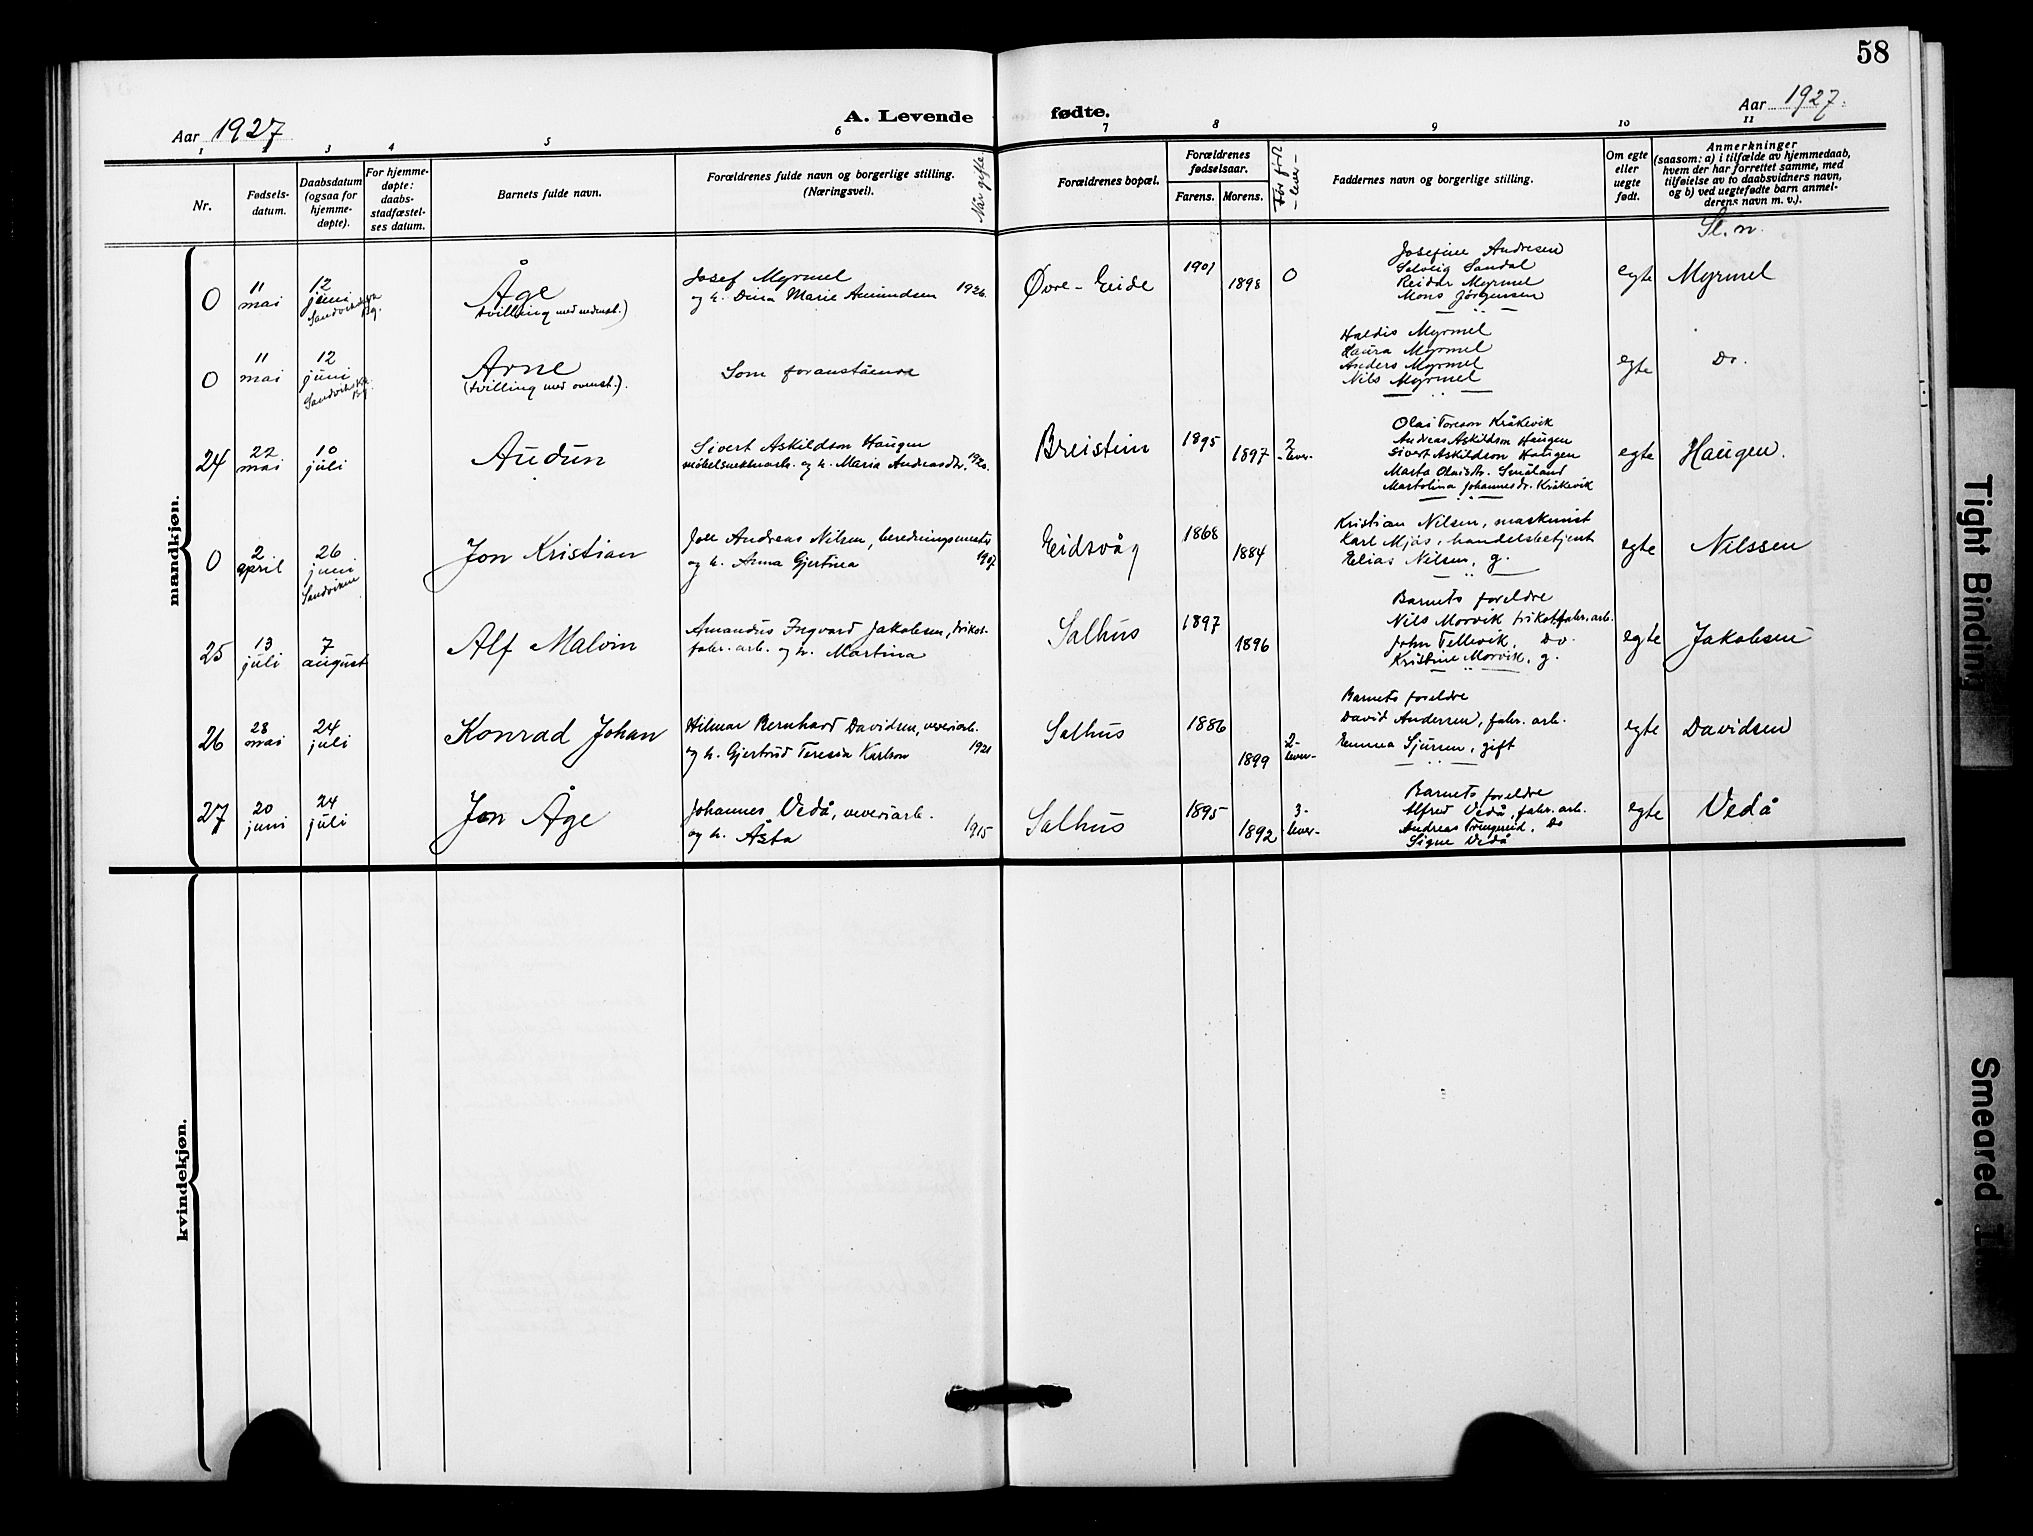 58
Aar 1927
A. Levende fødte.
Aar 1927.
1 2 3 4 5 6 7 8 9 10 11
Nr.
Fødsels-
datum.
Daabsdatum
(ogsaa for
hjemme-
døpte).
For hjemme-
døpte:
daabs-
stadfæstel-
ses datum.
Barnets fulde navn.
Forældrenes fulde navn og borgerlige stilling.
(Næringsvei).
Når gifte
Forældrenes bopæl.
Forældrenes
fødselsaar.
Farens. Morens.
Før født
- lever -
Faddernes navn og borgerlige stilling.
Om egte
eller
uegte
født.
Anmerkninger
(saasom: a) i tilfælde av hjemmedaab,
hvem der har forrettet samme, med
tilføielse av to daabsvidners navn,
og b) ved uegtefødte barn anmel-
derens navn m. v.).
Sl. n.
mandkjøn.
0
11
mai
12
juni
Åge
(tvilling med nedenst.)
Josef Myrmel
og h. Dina Marie Amundsen 1926
Øvre-Eide
1901
1898
0
Josefine Andresen
Solveig Sandal
Reidar Myrmel
Mons Jørgensen
egte
Myrmel
0
11
mai
12
juni
Arne
(tvilling med ovenst.).
Som foranstående
Haldis Myrmel
Laura Myrmel
Anders Myrmel
Nils Myrmel
egte
Do.
24
22
mai
10
juli
Audun
Sivert Askildson Haugen
og h. Maria Andreasdr. 1920
Breistein
1895
1897
2
-lever-
Olai Toreson Kråkevik
Andreas Askildson Haugen
Sivert Askildson Haugen
Marta Olaisdr. Småland
Martolina Johannesdr. Kråkevik
egte
Haugen.
0
2
april
26
juni
Sandviken
Jon Kristian
Joh Andreas Nilsen, beredningsmester
og h. Anna Gjertina 1907
Eidsvåg
1868
1884
Kristian Nilsen, maskinist
Karl Mjøs, handelsbetjent
Elias Nilsen, g.
egte
Nilssen
25
13
juli
7
august
Alf Malvin
Amandus Ingvard Jakobsen, trikot-
fabr. arb. og h. Martina
Salhus
1897
1896
Barnets foreldre
Nils Morvik trikotfabr. arb.
John Tellevik, Do.
Kristine Morvik, g.
egte
Jakobsen
26
28
mai
24
juli
Konrad Johan
Hilmar Bernhard Davidsen, veveriarb.
og h. Gjertrud Teresia Karlson 1921
Salhus
1886
1899
2-
lever-
Barnets foreldre
David Andersen, fabr. arb.
Emma Sjursen, gift
egte
Davidsen
27
20
juni
24
juli
Jon Åge
Johannes Vedå, veveriarb.
og h. Åsta 1915
Salhus
1895
1892
3-
lever-
Barnets foreldre
Alfred Vedå, fabr. arb.
Andreas Do
Signe Vedå
egte
Vedå
kvindekjøn.
Tight Binding
Smeared